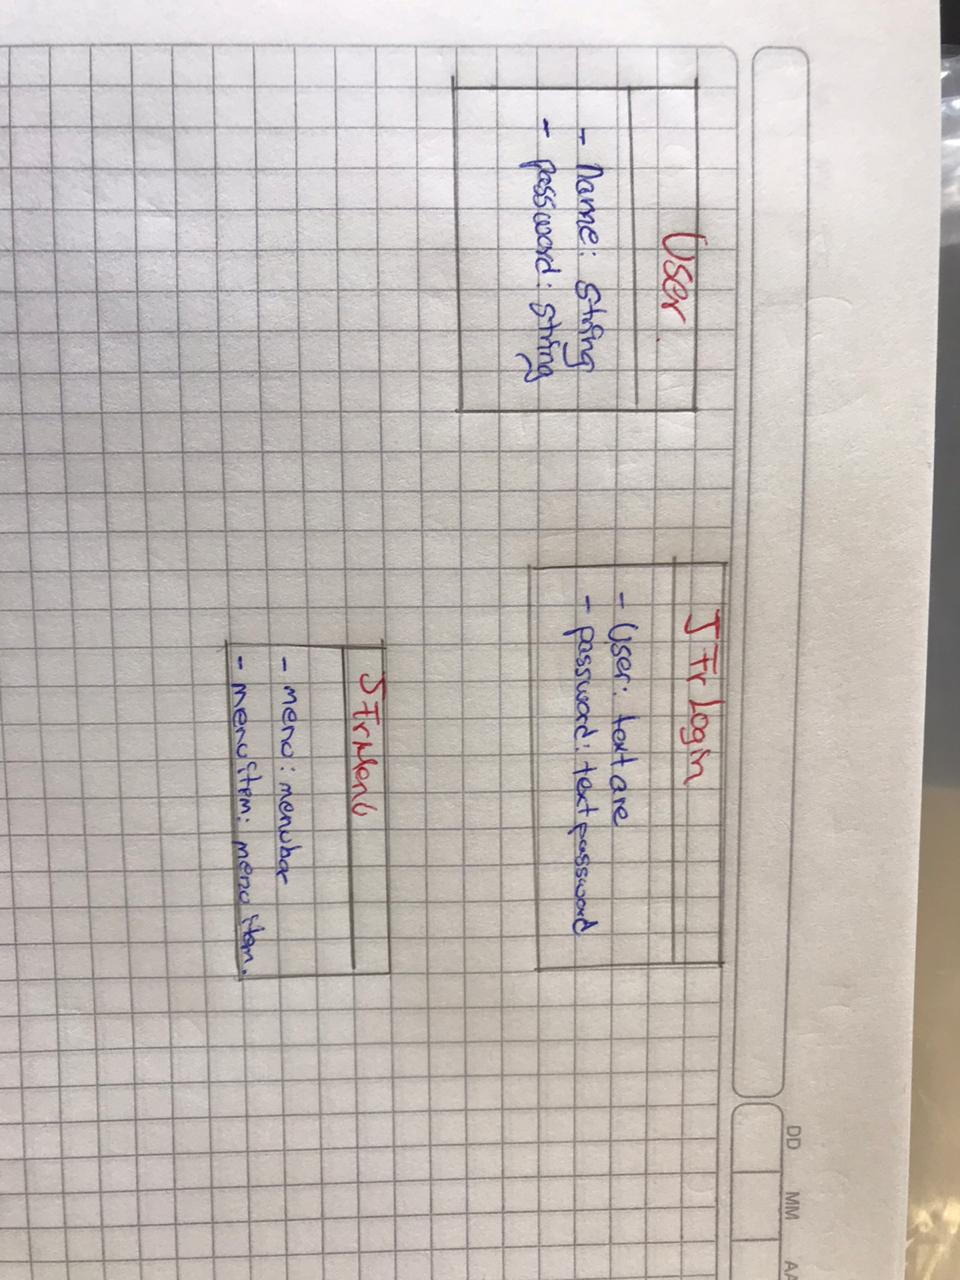 User
- Name: string
- password: string
JFrLogin
- User: text are
- password: textpassword
JFrMenu
- menu: menubar
- menuitem: menu item.
DD MM